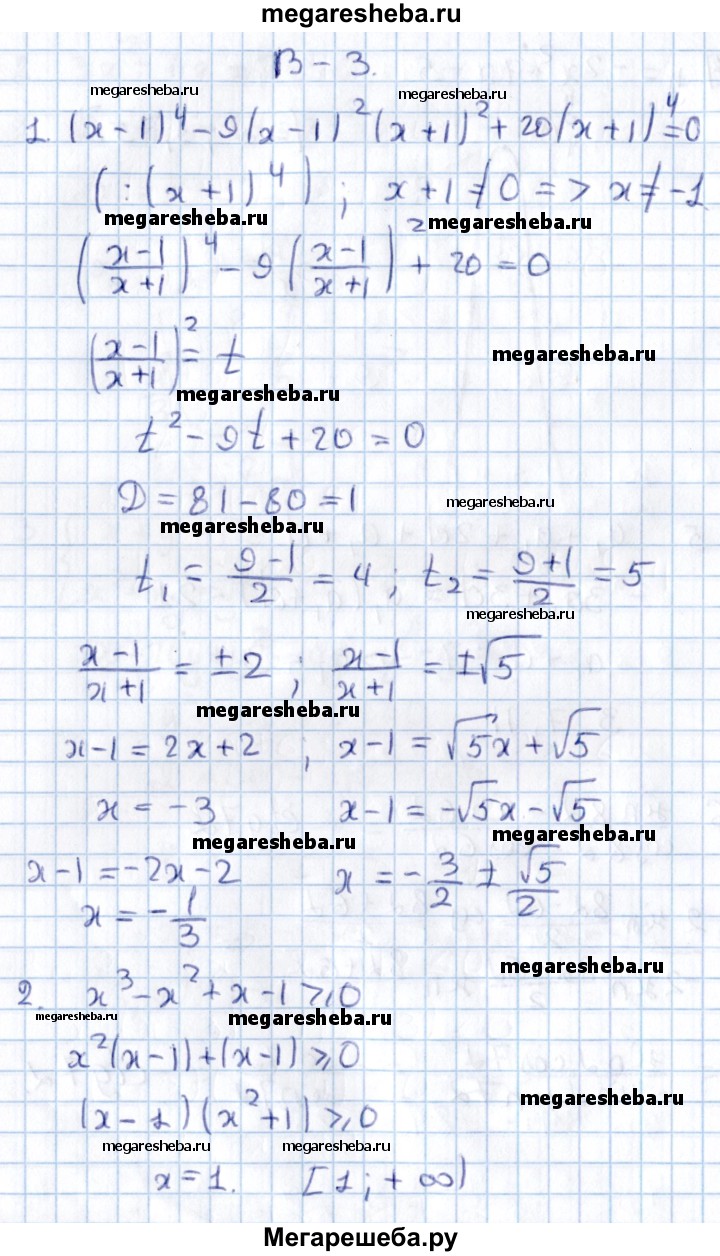 megaresheba.ru
В – 3.
megaresheba.ru megaresheba.ru
1. (x – 1)⁴ – 9(x – 1)²(x + 1)² + 20(x + 1)⁴ = 0
( : (x + 1)⁴ ) ; x + 1 ≠ 0 => x ≠ –1
megaresheba.ru megaresheba.ru
((x–1)/(x+1))⁴ – 9((x–1)/(x+1))² + 20 = 0
((x–1)/(x+1))² = t
megaresheba.ru
megaresheba.ru
t² – 9t + 20 = 0
D = 81 – 80 = 1
megaresheba.ru
megaresheba.ru
t₁ = (9–1)/2 = 4 ; t₂ = (9+1)/2 = 5
megaresheba.ru
(x–1)/(x+1) = ±2 ; (x–1)/(x+1) = ±√5
megaresheba.ru
x–1 = 2x+2 ; x–1 = √5x + √5
x = –3 x–1 = –√5x – √5
megaresheba.ru megaresheba.ru
x–1 = –2x–2 x = –3/2 ± √5/2
x = –1/3
megaresheba.ru
2. x³ – x² + x – 1 ⩾ 0
megaresheba.ru megaresheba.ru
x²(x–1) + (x–1) ⩾ 0
megaresheba.ru
(x–1)(x²+1) ⩾ 0
megaresheba.ru megaresheba.ru
x = 1. [1 ; + ∞)
Мегарешеба.ру